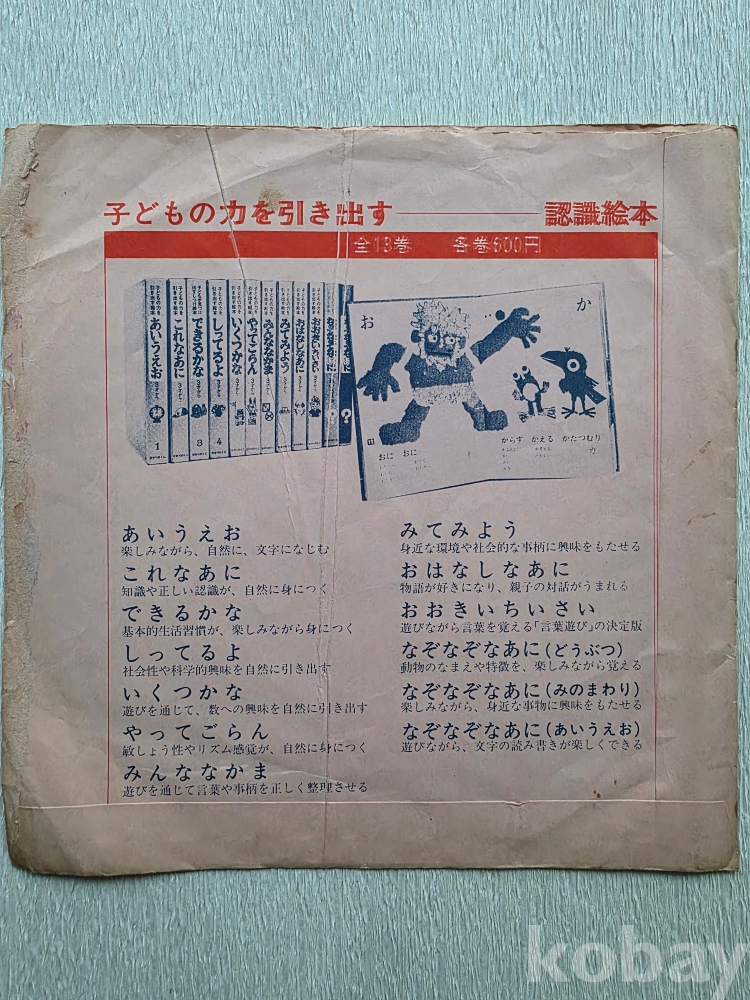 子どもの力を引き出す 認識絵本
全13巻 各巻600円
あいうえお
これなあに
できるかな
しってるよ
いくつかな
やってごらん
みんななかま
みてみよう
おはなしなあに
おおきいちいさい
1
3
4
?
?
お
か
おに おに
からす かえる かたつむり
あいうえお
楽しみながら、自然に、文字になじむ
これなあに
知識や正しい認識が、自然に身につく
できるかな
基本的生活習慣が、楽しみながら身につく
しってるよ
社会性や科学的興味を自然に引き出す
いくつかな
遊びを通じて、数への興味を自然に引き出す
やってごらん
敏しょう性やリズム感覚が、自然に身につく
みんななかま
遊びを通じて言葉や事柄を正しく整理させる
みてみよう
身近な環境や社会的な事柄に興味をもたせる
おはなしなあに
物語が好きになり、親子の対話がうまれる
おおきいちいさい
遊びながら言葉を覚える「言葉遊び」の決定版
なぞなぞなあに(どうぶつ)
動物のなまえや特徴を、楽しみながら覚える
なぞなぞなあに(みのまわり)
楽しみながら、身近な事物に興味をもたせる
なぞなぞなあに(あいうえお)
遊びながら、文字の読み書きが楽しくできる
kobay